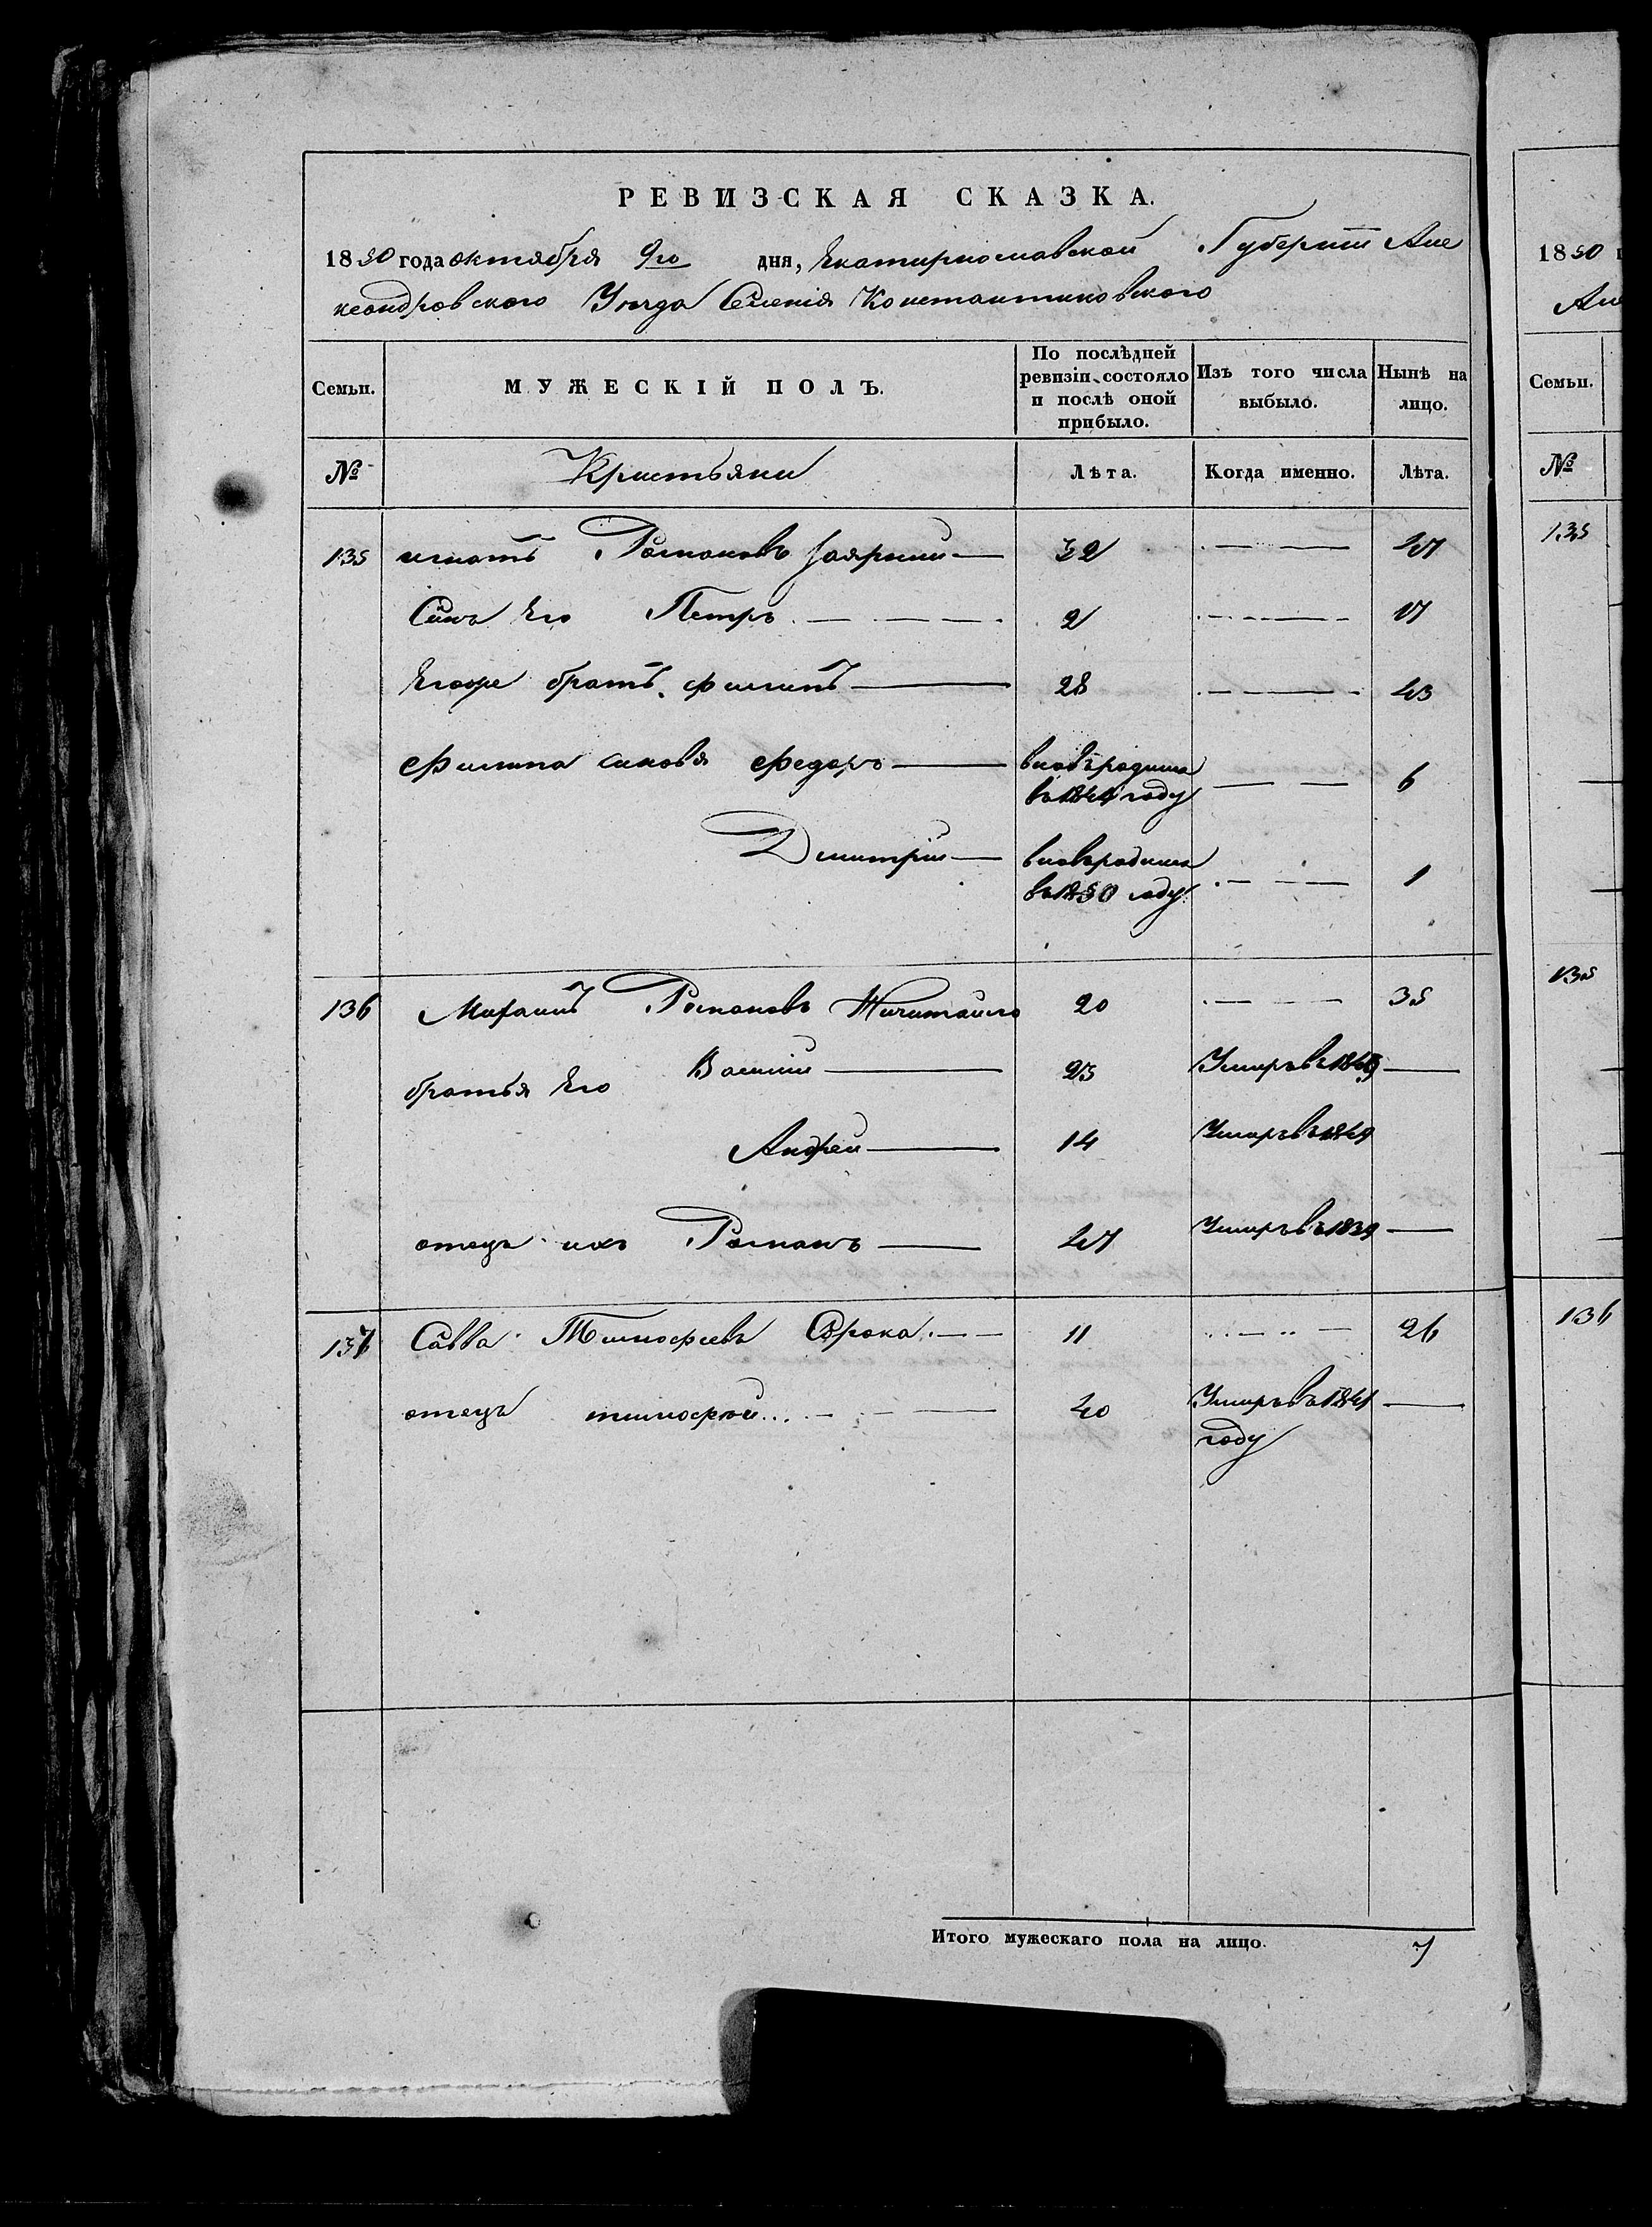 РЕВИЗСКАЯ СКАЗКА.
1850 года октября 9го дня, Екатиринославской Губернiи Але
ксандровского Уезда Селенiя Константиновского
Семьи. МУЖЕСКІЙ ПОЛЪ. По послѣдней ревизіи состояло и послѣ оной прибыло. Изъ того числа выбыло. Нынѣ на лицо.
№ Кристьяни Лѣта. Когда именно. Лѣта.
135 игнатъ Романовъ 32 47
Синъ Его Петръ 2 17
Егоже братъ филипъ 28 43
филипа синовя федоръ вновъродился въ 1844 году 6
Дмитрiи вновъродился въ 1850 году 1
136 Романовъ 20 35
братья Его Василiи 23 Умиръ въ
Андреи 14 Умиръ въ 1849
отецъ ихъ Романъ 47 Умиръ въ 1839
137 Савва Тимофѣевъ Сорока 11 26
отецъ тимофѣй 40 Умиръ въ 1841 году
Итого мужескаго пола на лицо. 7
1850
Але
Семьи.
№
135
135
136